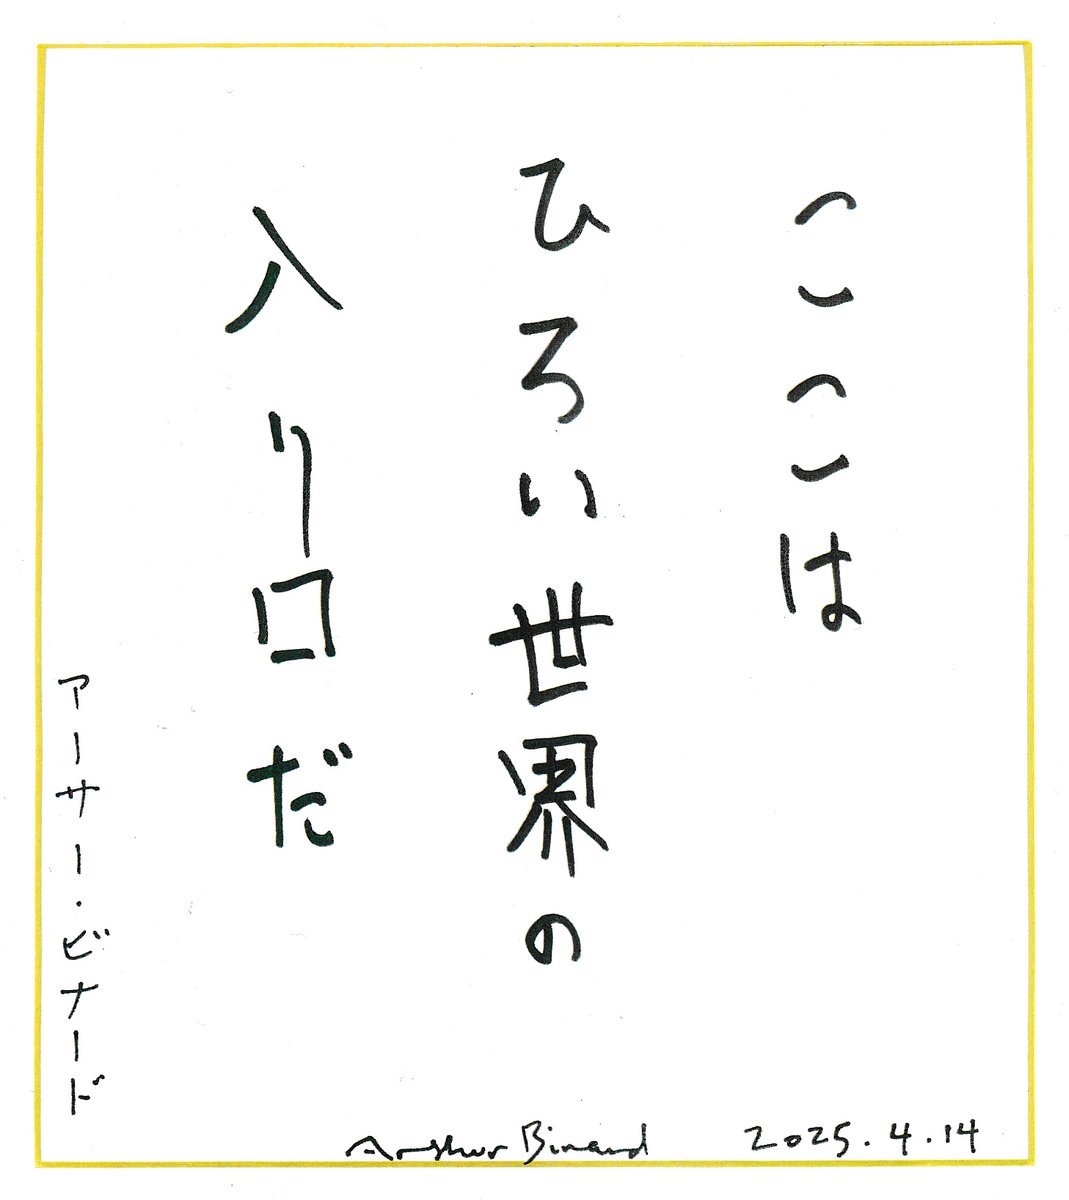 ここは
ひろい世界の
入り口だ
アーサー・ビナード
Arthur Binard
2025.4.14